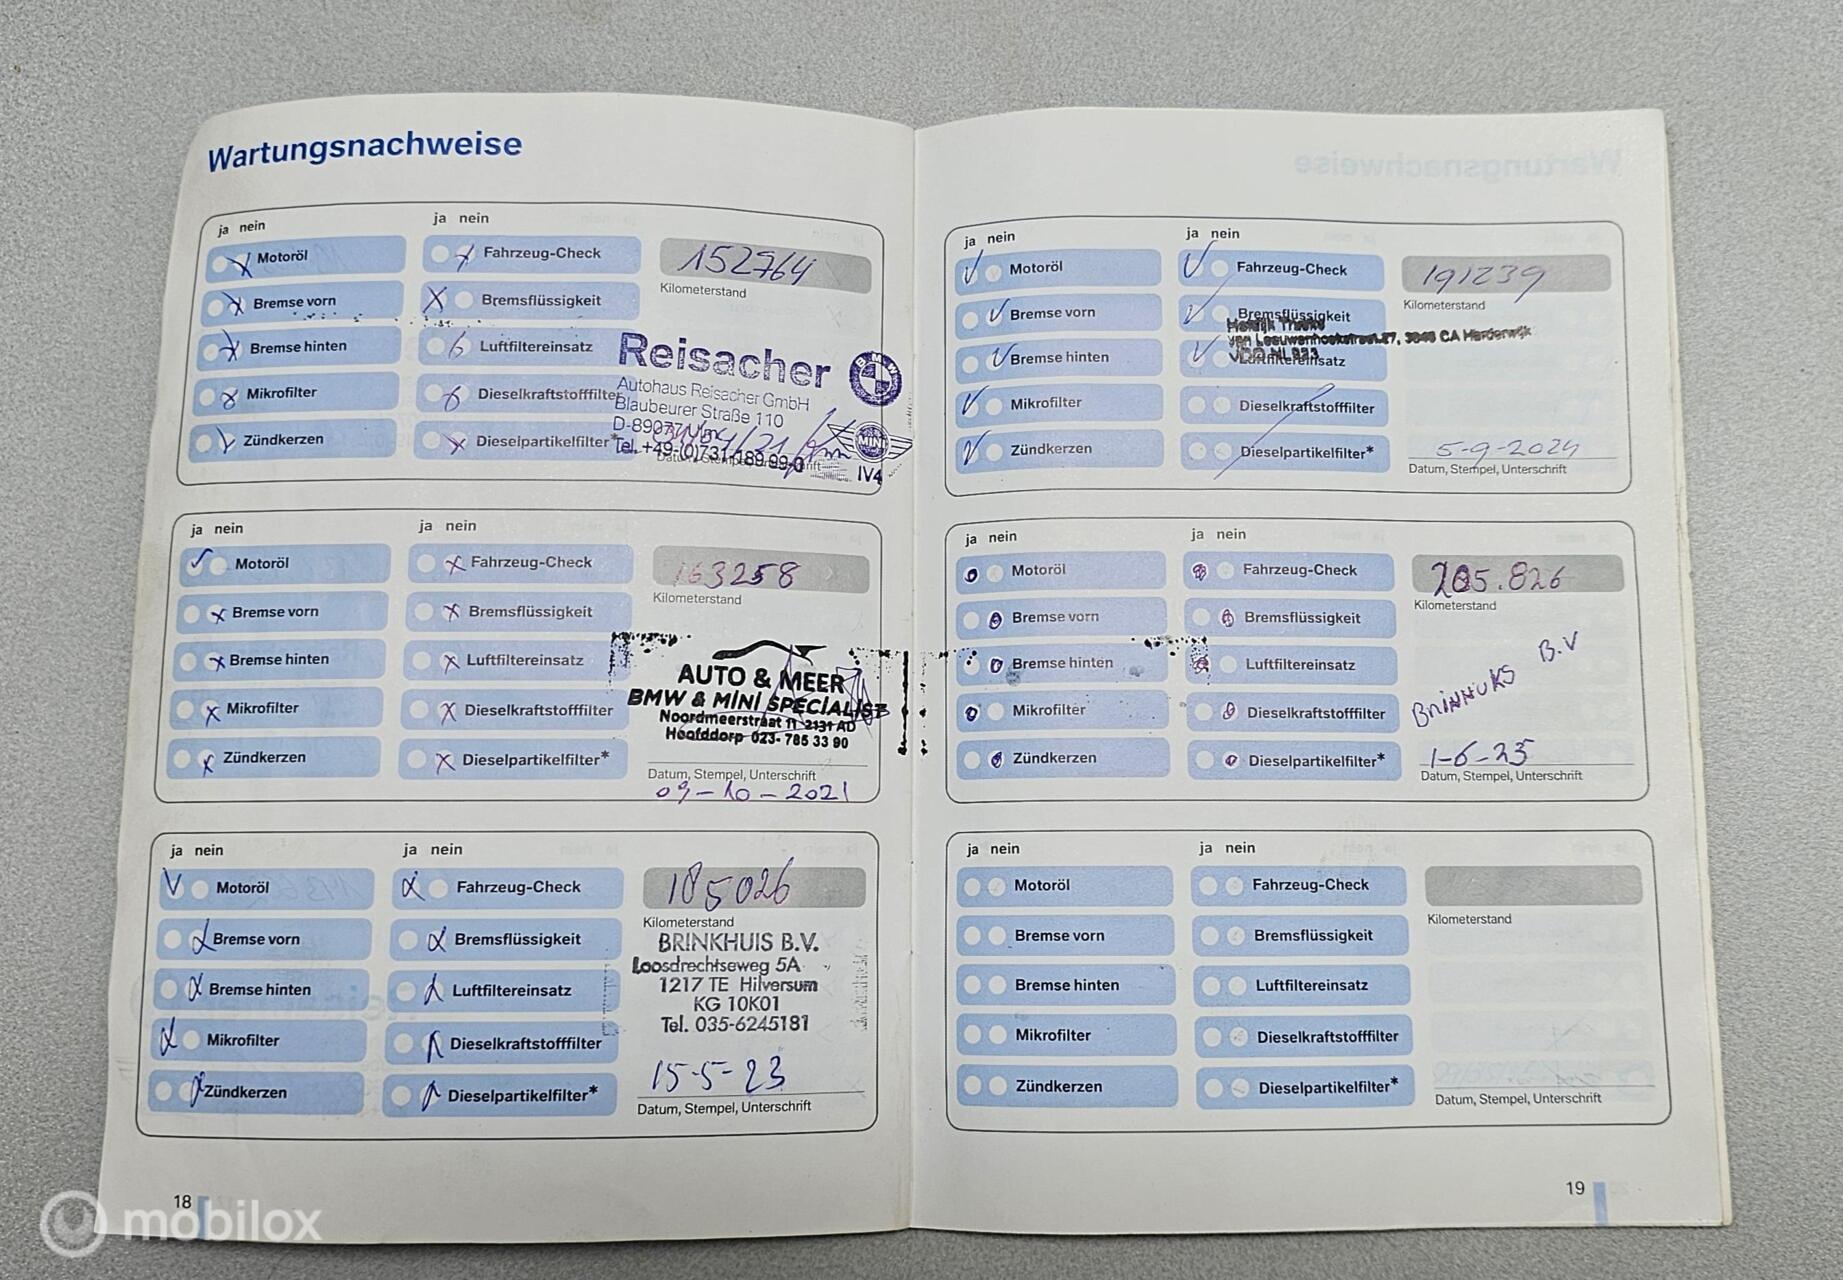 Wartungsnachweise
ja nein
ja nein
Motoröl
Fahrzeug-Check
152764
Bremse vorn
Bremsflüssigkeit
Kilometerstand
Bremse hinten
Luftfiltereinsatz
Reisacher
BMW
Autohaus Reisacher GmbH
Mikrofilter
Dieselkraftstofffilter
Blaubeurer Straße 110
D-89077 Ulm
MINI
Zündkerzen
Dieselpartikelfilter*
Tel. +49-(0)731/189 99-0
IV4
ja nein
ja nein
Motoröl
Fahrzeug-Check
163258
Bremse vorn
Bremsflüssigkeit
Kilometerstand
Bremse hinten
Luftfiltereinsatz
AUTO & MEER
BMW & MINI SPECIALIST
Mikrofilter
Dieselkraftstofffilter
Noordmeerstraat 11 2131 AD
Hoofddorp 023-785 33 90
Zündkerzen
Dieselpartikelfilter*
Datum, Stempel, Unterschrift
09-10-2021
ja nein
ja nein
Motoröl
Fahrzeug-Check
185026
Kilometerstand
Bremse vorn
Bremsflüssigkeit
BRINKHUIS B.V.
Loosdrechtseweg 5A
Bremse hinten
Luftfiltereinsatz
1217 TE Hilversum
KG 10K01
Tel. 035-6245181
Mikrofilter
Dieselkraftstofffilter
15-5-23
Zündkerzen
Dieselpartikelfilter*
Datum, Stempel, Unterschrift
18
ja nein
ja nein
Motoröl
Fahrzeug-Check
191239
Kilometerstand
Bremse vorn
Bremsflüssigkeit
van Leeuwenhoekstraat 27, 3846 CA Harderwijk
Bremse hinten
Luftfiltereinsatz
Mikrofilter
Dieselkraftstofffilter
5-9-2024
Zündkerzen
Dieselpartikelfilter*
Datum, Stempel, Unterschrift
ja nein
ja nein
Motoröl
Fahrzeug-Check
205.826
Kilometerstand
Bremse vorn
Bremsflüssigkeit
Bremse hinten
Luftfiltereinsatz
B.V
Mikrofilter
Dieselkraftstofffilter
1-6-25
Zündkerzen
Dieselpartikelfilter*
Datum, Stempel, Unterschrift
ja nein
ja nein
Motoröl
Fahrzeug-Check
Kilometerstand
Bremse vorn
Bremsflüssigkeit
Bremse hinten
Luftfiltereinsatz
Mikrofilter
Dieselkraftstofffilter
Zündkerzen
Dieselpartikelfilter*
Datum, Stempel, Unterschrift
19
mobilox